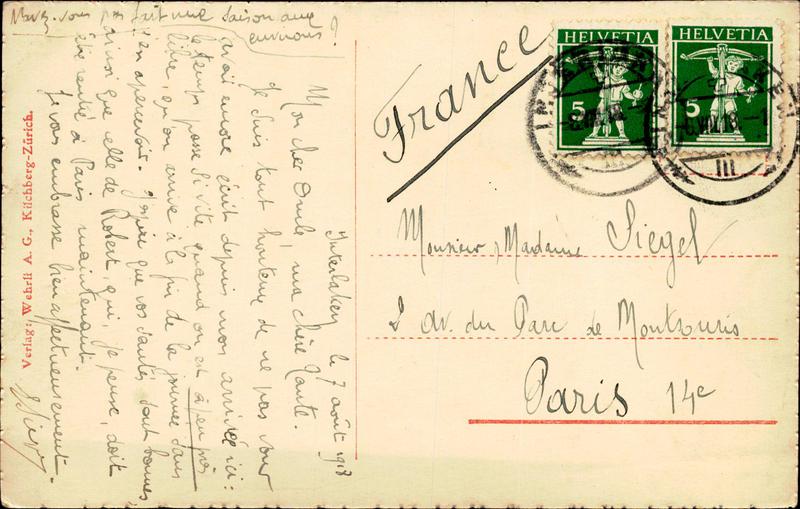 Interlaken, le 7 août 1918
Mon cher Oncle, ma chère Tante.
Je suis tout honteux de ne pas vous
avoir encore écrit depuis mon arrivée ici:
le temps passe si vite quand on est à peu près
libre, qu'on arrive à la fin de la journée sans
s'en apercevoir. J'espère que vos santés sont bonnes,
ainsi que celle de Robert, qui, je pense, doit
être rentré à Paris maintenant.
Je vous embrasse bien affectueusement.
Avez-vous pas fait une saison aux
environs?
Verlag: Wehrli A. G., Kilchberg-Zürich.
France
HELVETIA
5
HELVETIA
5
INTERLAKEN
III
Monsieur, Madame Siegel
2 av. du Parc de Montsouris
Paris 14e